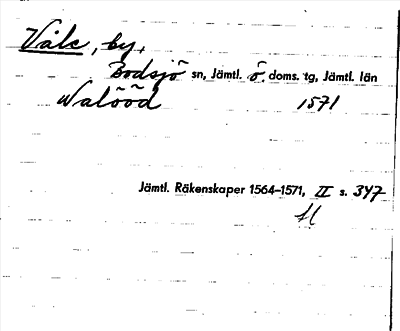 Våle, by,
Bodsjö sn, Jämtl. ö. doms. tg, Jämtl. län
Walööd 1571
Jämtl. Räkenskaper 1564–1571, II s. 347